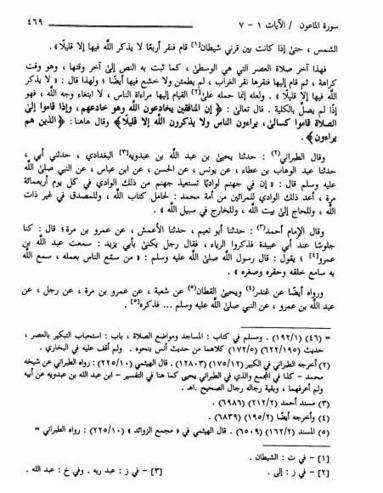 سورة الماعون / الآيات ١ - ٧
٤٦٩
الشمس ، حتى إذا كانت بين قرني شيطان[١] قام فنقر أربعًا لا يذكر اللَّه فيها إلا قليلًا» .
فهذا آخر صلاة العصر التي هي الوسطى ، كما ثبت به النص إلى آخر وقتها ، وهو وقت
كراهة ، ثم قام إليها فنقرها نقر الغراب ، لم يطمئن ولا خشع فيها أيضًا ؛ ولهذا قال : « لا يذكر
اللَّه فيها إلا قليلًا » . ولعله إنما حمله على[٢] القيام إليها مراءاة الناس ، لا ابتغاء وجه اللَّه ، فهو
إذًا لم يصل بالكلية . قال تعالى : ﴿ إن المنافقين يخادعون اللَّه وهو خادعهم ، وإذا قاموا إلى
الصلاة قاموا كسالى ، يراءون الناس ولا يذكرون اللَّه إلا قليلًا ﴾ وقال هاهنا : ﴿ الذين هم
يراءون ﴾ .
وقال الطبراني(٢) : حدثنا يحيى بن عبد اللَّه بن عبدويه[٣] البغدادي ، حدثني أبي ،
حدثنا عبد الوهاب بن عطاء ، عن يونس ، عن الحسن ، عن ابن عباس ، عن النبي صلى اللَّه
عليه وسلم قال : « إن في جهنم لواديًا تستعيذ جهنم من ذلك الوادي في كل يوم أربعمائة
مرة ، أعد ذلك الوادي للمرائين من أمة محمد : لحامل كتاب اللَّه ، وللمصدق في غير ذات
اللَّه ، وللحاج إلى بيت اللَّه ، وللخارج في سبيل اللَّه » .
وقال الإمام أحمد(٣) : حدثنا أبو نعيم ، حدثنا الأعمش ، عن عمرو بن مرة ؛ قال : كنا
جلوسًا عند أبي عبيدة فذكروا الرياء ، فقال رجل يكنى بأبي يزيد : سمعت عبد اللَّه بن
عمرو يقول : قال رسول اللَّه صلى اللَّه عليه وسلم : « من سمّع الناس بعمله ، سمع اللَّه
به سامع خلقه وحقره وصغره » .
ورواه أيضًا عن غندر(٤) ويحيى القطان(٥) عن شعبة ، عن عمرو بن مرة ، عن رجل ، عن
عبد اللَّه بن عمرو ، عن النبي صلى اللَّه عليه وسلم ... فذكره .
= (٤٦) (١٩٢/١) . ومسلم في كتاب : المساجد ومواضع الصلاة ، باب : استحباب التبكير بالعصر ،
حديث (٦٢٢/١٩٥) (١٧٢/٥) كلاهما من حديث أنس بنحوه . ولم أقف عليه في البخاري .
(٢) أخرجه الطبراني في الكبير (١٧٥/١٢) (١٢٨٠٣) . قال الهيثمي (٢٢٥/١٠) : رواه الطبراني عن شيخه
محمد – كذا في المجمع والذي في الطبراني يحيى كما هنا في التفسير – ابن عبد اللَّه بن عبدويه عن أبيه
ولم أعرفهما ، وبقية رجاله رجال الصحيح .اهـ .
(٣) مسند أحمد (٢١٢/٢) (٦٩٨٦) .
(٤) وأخرجه أيضًا (١٩٥/٢) (٦٨٣٩) .
(٥) المسند (١٦٢/٢) (٦٥٠٩) . قال الهيثمي في « مجمع الزوائد » (٢٢٥/١٠) : رواه الطبراني =
[١] - في ت : الشيطان .
[٢] - في ز : إلى .
[٣] - في ز : عبد ربه . وفي خ : عبد الله .